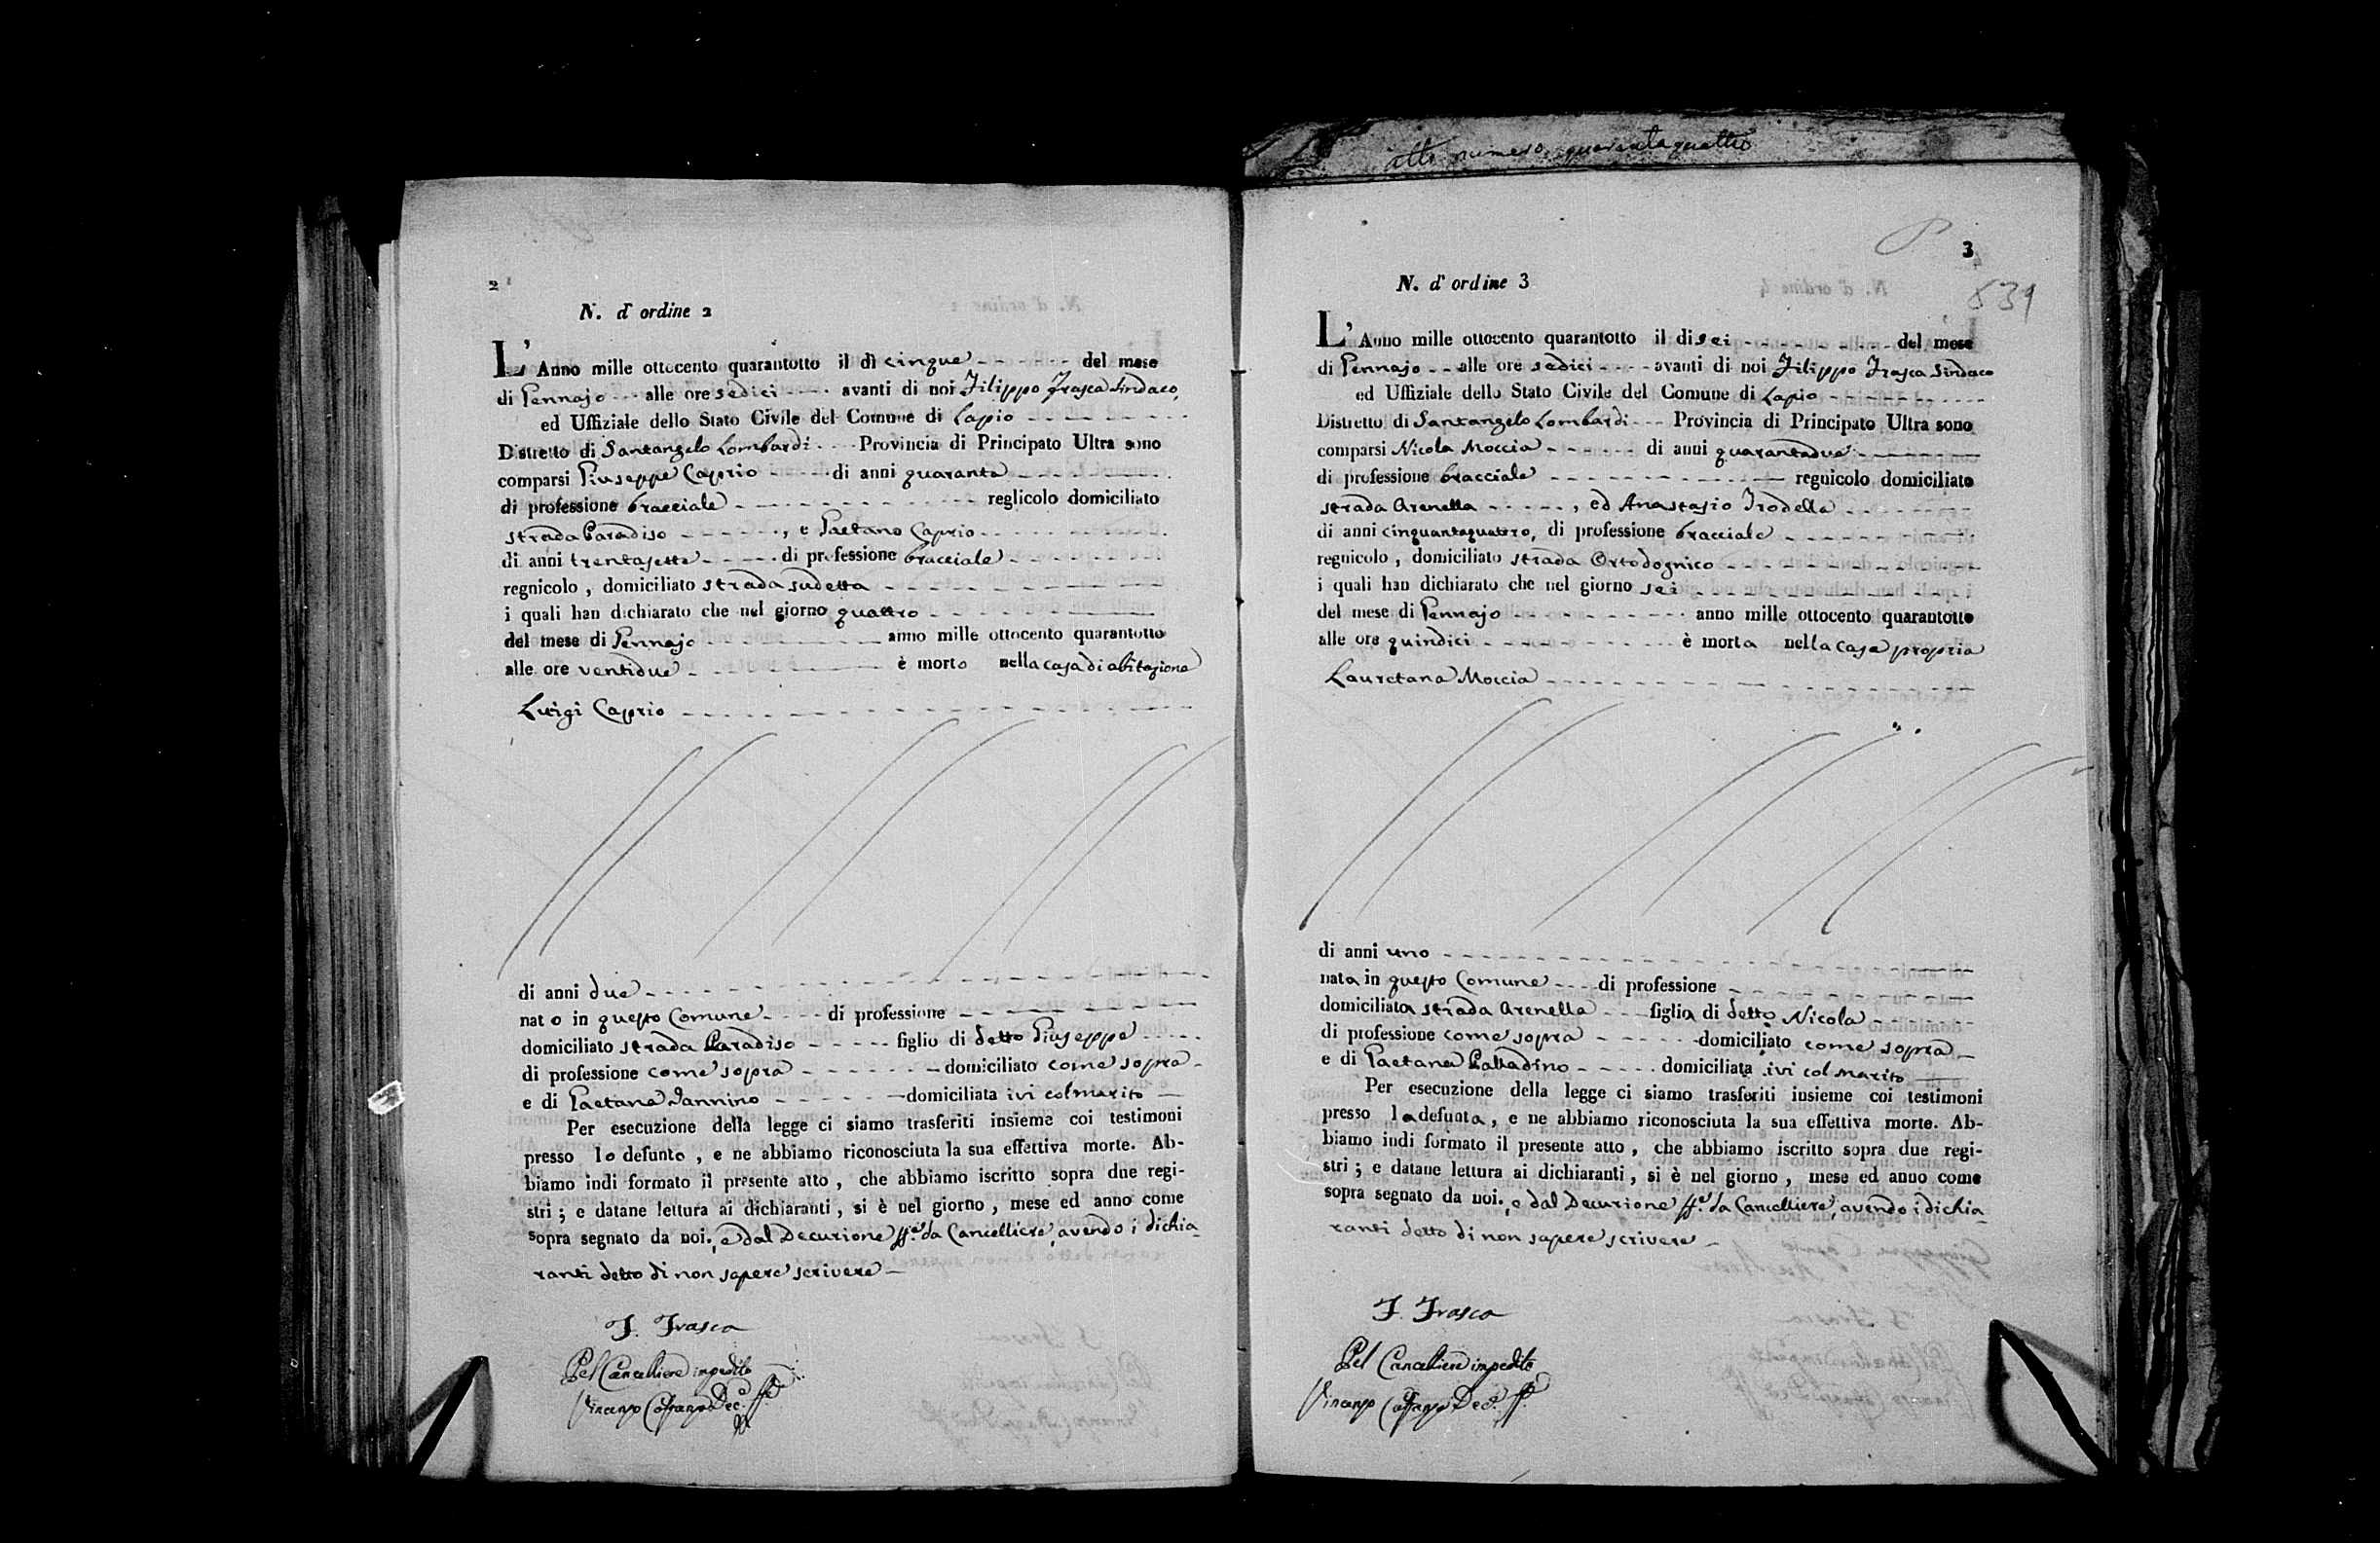 2
N. d' ordine 2
L' Anno mille ottocento quarantotto il dì cinque del mese
di Gennajo alle ore sedici avanti di noi Filippo Frasca Sindaco,
ed Uffiziale dello Stato Civile del Comune di Lapio
Distretto di Santangelo Lombardi Provincia di Principato Ultra sono
comparsi Giuseppe Caprio di anni quaranta
di professione bracciale reglicolo domiciliato
strada Paradiso , e Gaetano Caprio
di anni trentasette di professione bracciale
regnicolo , domiciliato strada sudetta
i quali han dichiarato che nel giorno quattro
del mese di Gennajo anno mille ottocento quarantotto
alle ore ventidue è morto nella casa di abitazione
Luigi Caprio
di anni due
nato in questo Comune di professione
domiciliato strada Paradiso figlio di detto Giuseppe
di professione come sopra domiciliato come sopra
e di Gaetana Iannino domiciliata ivi col marito
Per esecuzione della legge ci siamo trasferiti insieme coi testimoni
presso lo defunto , e ne abbiamo riconosciuta la sua effettiva morte. Ab-
biamo indi formato il presente atto , che abbiamo iscritto sopra due regi-
stri ; e datane lettura ai dichiaranti , si è nel giorno , mese ed anno come
sopra segnato da noi., e dal Decurione ff. da Cancelliere, avendo i dichia-
ranti detto di non sapere scrivere
F. Frasca
Pel Cancelliere impedito
Vincenzo Dec. ff.
atto numero quarantaquattro
3
839
N. d' ordine 3
L' Anno mille ottocento quarantotto il di sei del mese
di Gennajo alle ore sedici avanti di noi Filippo Frasca Sindaco
ed Uffiziale dello Stato Civile del Comune di Lapio
Distretto di Santangelo Lombardi Provincia di Principato Ultra sono
comparsi Nicola Moccia di anni quarantadue
di professione bracciale regnicolo domiciliato
strada Arenella , ed Anastasio Frodella
di anni cinquantaquattro, di professione bracciale
regnicolo , domiciliato strada Ortodognico
i quali han dichiarato che nel giorno sei
del mese di Gennajo anno mille ottocento quarantotto
alle ore quindici è morta nella casa propria
Lauretana Moccia
di anni uno
nata in questo Comune di professione
domiciliata strada Arenella figlia di detto Nicola
di professione come sopra domiciliato come sopra
e di Gaetana Palladino domiciliata ivi col marito
Per esecuzione della legge ci siamo trasferiti insieme coi testimoni
presso la defunta , e ne abbiamo riconosciuta la sua effettiva morte. Ab-
biamo indi formato il presente atto , che abbiamo iscritto sopra due regi-
stri ; e datane lettura ai dichiaranti , si è nel giorno , mese ed anno come
sopra segnato da noi., e dal Decurione ff. da Cancelliere, avendo i dichia-
ranti detto di non sapere scrivere
F. Frasca
Pel Cancelliere impedito
Vincenzo Dec. ff.